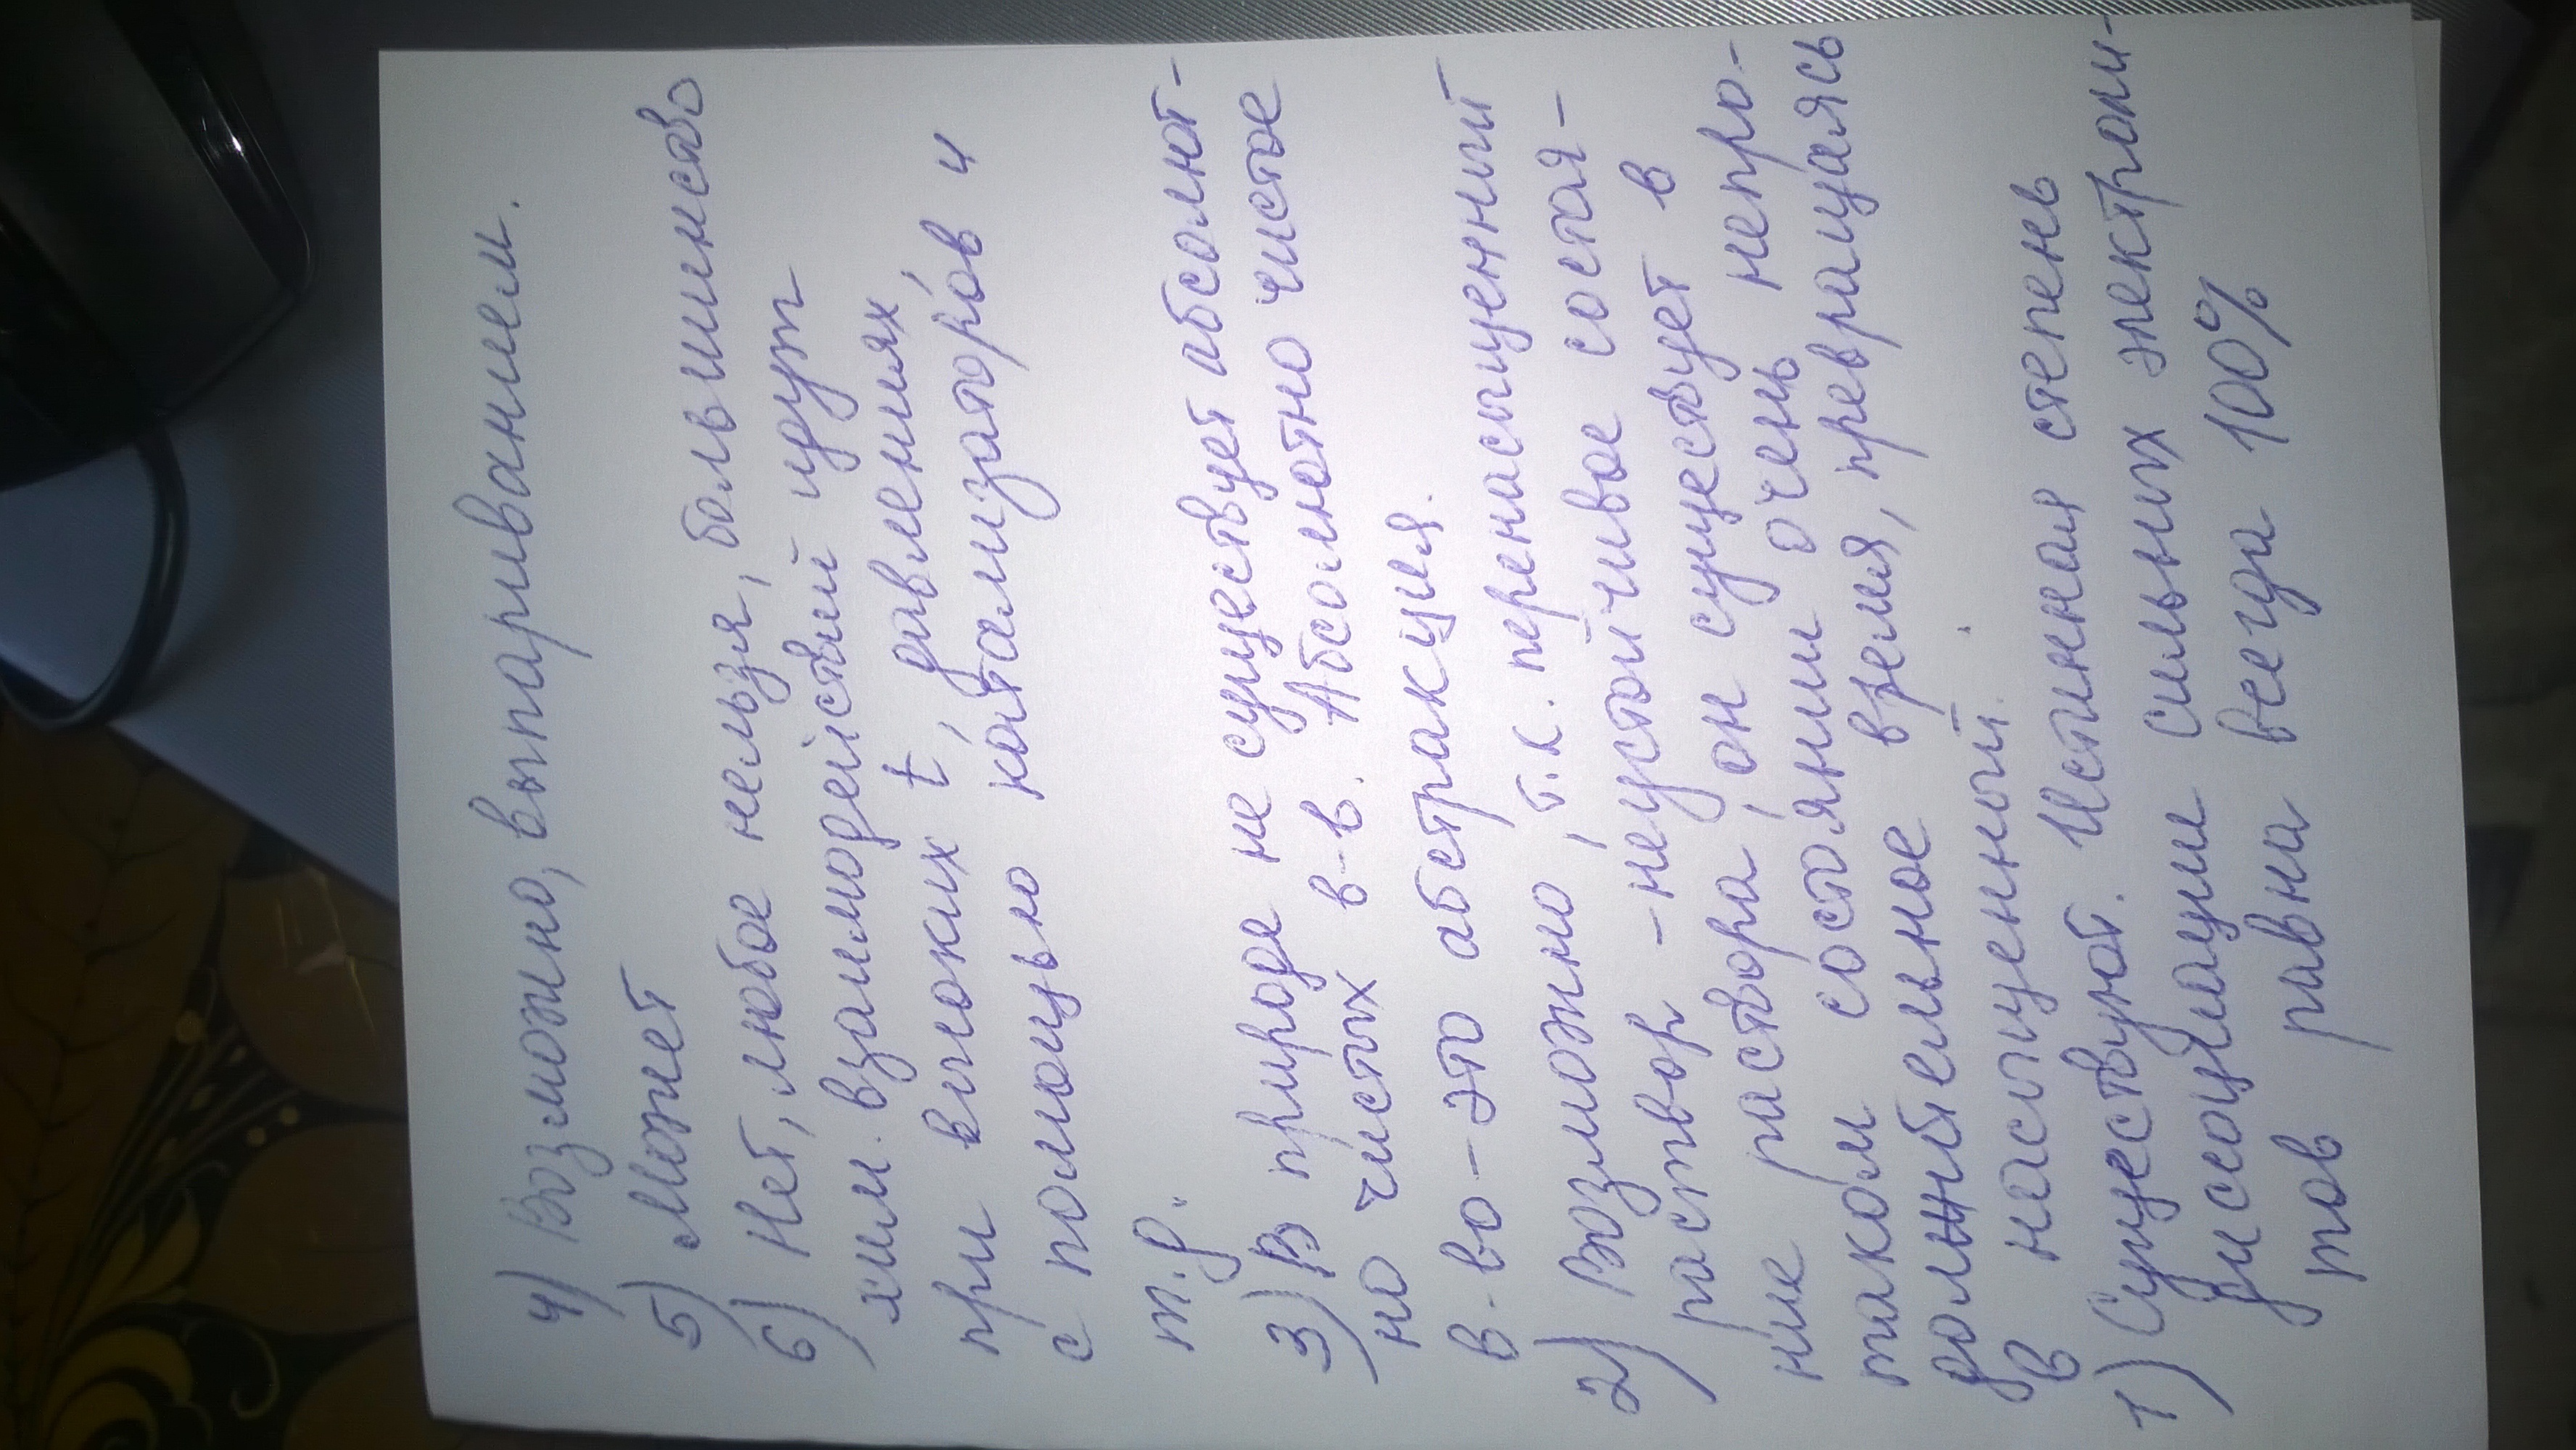 4) Возможно, выпариванием.
5) Может
6) Нет, любое нельзя, большинство
хим. взаимодействий идут
при высоких t, давлениях,
с помощью катализаторов и
т.д.
3) В природе не существует абсолют-
но чистых в-в. Абсолютно чистое
в-во - это абстракция.
2) Возможно, т.к. перенасыщенный
раствор - неустойчивое состоя-
ние раствора, он существует в
таком состоянии очень непро-
должительное время, превращаясь
в насыщенный.
1) Существуют. Истинная степень
диссоциации сильных электроли-
тов равна всегда 100%